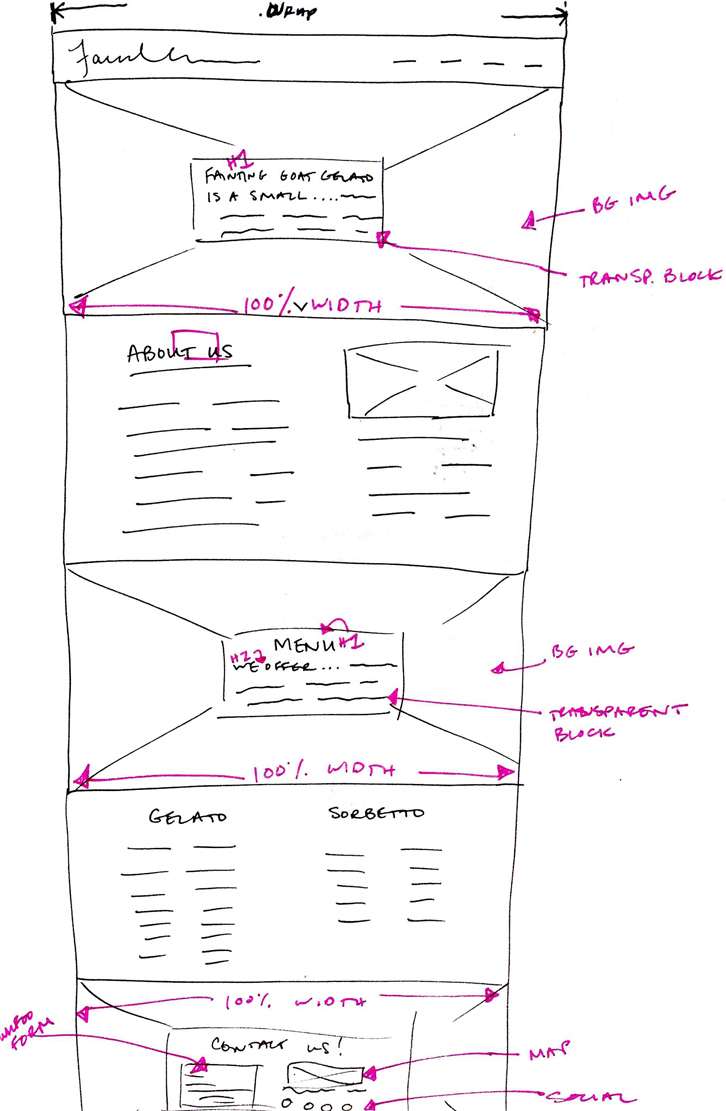 .WRAP
H1
FAINTING GOAT GELATO
IS A SMALL....
BG IMG
TRANSP. BLOCK
100% WIDTH
ABOUT US
MENU H1
WE OFFER...
BG IMG
TRANSPARENT
BLOCK
100% WIDTH
GELATO SORBETTO
100% WIDTH
WUFOO
FORM
CONTACT US!
MAP
SOCIAL